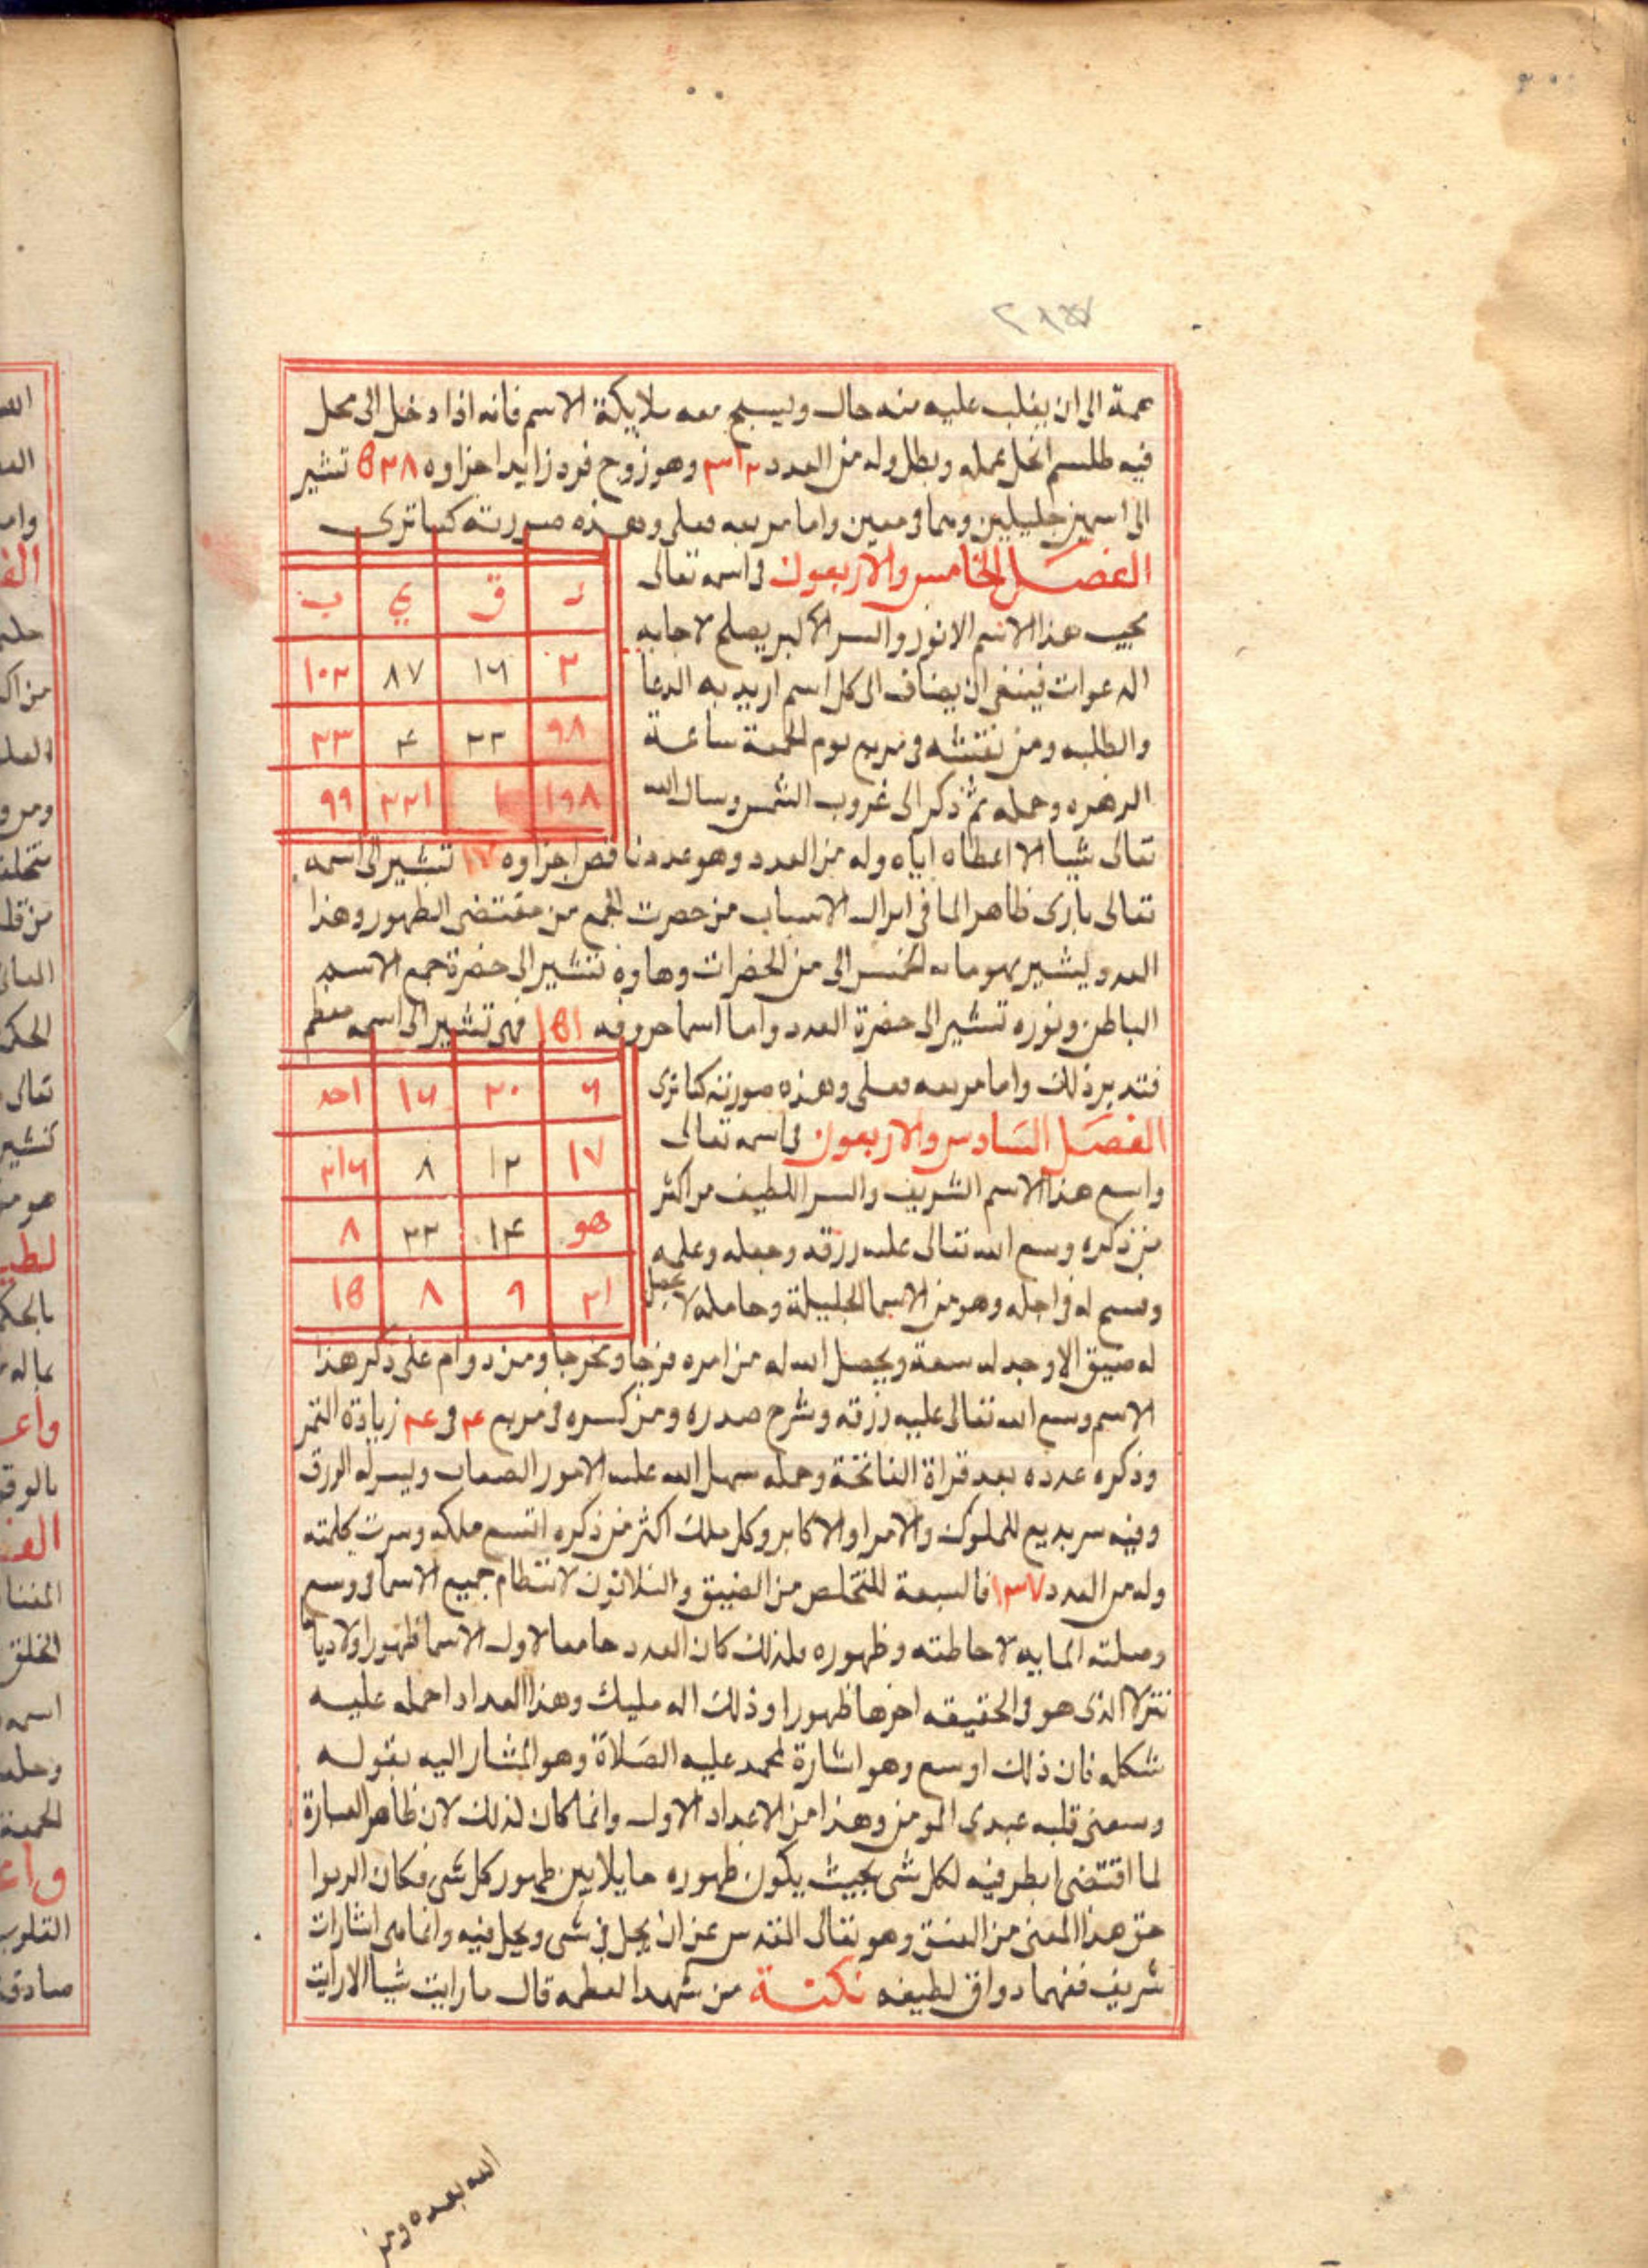 ٢١٥٧
عمة الى ان يغلب عليه منه حال ويسبح معه ملايكة الاسم فانه اذا دخل الى محل
فيه طلسم انحل عمله وبطل وله من العدد ٣١٢ وهو زوج فرد زايد اجزاوه ٥٢٨ تشير
الى اسمين جليلين وهما في معين واما مربعه فعلى وهذه صورته كما ترى
الفصل الخامس والاربعون في اسمه تعالى
مجيب هذا الاسم الانور والسر الاكبر يصلح لاجابه
الدعوات فينبغي ان يضاف الى كل اسم اريد به الدعا
والطلبه ومن نقشه في مربع يوم الجمعة ساعة
الزهره وحمله ثم ذكر الى غروب الشمس وسال الله
ر ق ي ب
٣ ١٩ ٨٧ ١٠٢
٩٨ ٢٢ ٤ ٢٣
١٩٨ ١ ٢٢١ ٩٩
تعالى شيا الا اعطاه اياه وله من العدد وهو عدد ناقص اجزاوه ١٧ تشير الى اسمه
تعالى بارى ظاهر الما في ابرال الاسباب من حصرت الجمع من مقتضى الظهور وهذا
العدد ليشير بهوما به الخمس الى من الحضرات وهاوه تشير الى حضرة جمع الاسم
الباطن ونوره تشير الى حضرة العدد واما اسما حروفه ١٥١ فهى تشير الى اسمه معظم
فتدبر ذلك واما مربعه فعلى وهذه صورته كما ترى
الفصل السادس والاربعون في اسمه تعالى
واسع هذا الاسم الشريف والسر اللطيف من اكثر
من ذكره وسع الله تعالى عليه رزقه وجعله وعلمه
وفسح له في اجله وهو من الاسما الجليلة وحامله لا يحصل
٦ ٢٠ ١٦ احد
١٧ ١٢ ٨ ٢١٦
هو ١٤ ٢٢ ٨
٢١ ٩ ٨ ١٥
له ضيق الا وجد له سعة ويجعل الله له من امره فرجا ومخرجا ومن دوام على ذكر هذا
الاسم وسع الله تعالى عليه رزقه وشرح صدره ومن كسره في مربع ٤ في ٤ زيادة القمر
وذكره عدده بعد قراة الفاتحة وحمله سهل الله عليه الامور الصعاب ويسر له الرزق
وفيه سر بديع للملوك والامرا والاكابر وكل ملك اكثر من ذكره اتسع ملكه وسرت كلمته
وله من العدد ١٣٧ فالسبعة للتخلص من الضيق والثلاثون لانتظام جميع الاسما في وسع
وصلته المايه لاحاطته وظهوره فلذلك كان العدد جامعا لاول الاسما ظهورا ولا ديا
تنزلا الذي هو في الحقيقه اخرها ظهورا وذلك اله مليك وهذا العداد احمله عليه
شكله فان ذلك اوسع وهو اشارة لمحمد عليه الصلاة وهو المشار اليه بقوله
وسعنى قلبه عبدى المومن وهذا من الاعداد الاول وانما كان لذلك لان ظاهر العبارة
لما اقتضى ابطر فيه لكل شى بحيث يكون ظهوره حايلا بين ظهور كل شى فكان الربوا
حق هذا المعنى من العنق وهو تعالى المقدس عن ان يحل في شى ويحل فيه وانما هى اشارات
شريف ففهما دواق لطيفه نكتة من شهد العظمه قال ما رايت شيا الا رايت
الله بعده ومن